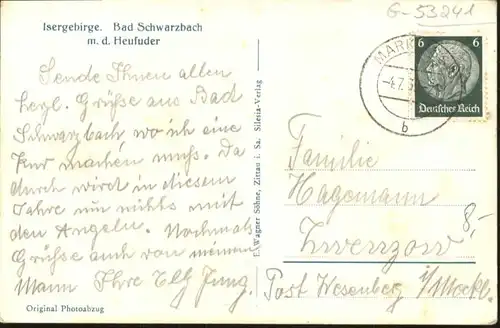 G-53241
Isergebirge. Bad Schwarzbach
m. d. Heufuder
Sende Ihnen allen
herzl. Grüße aus Bad
Schwarzbach wo ich eine
Kur machen muß. Da
durch wird in diesem
Jahre nun nichts mit
den Angeln. Nochmals
Grüße auch von meinem
Mann Ihre Elly Jung.
Original Photoabzug
E. Wagner Söhne, Zittau i. Sa. Silesia-Verlag
MAR
-4.7.3
b
6 6
Deutsches Reich
Familie
Hagemann
8,-
Zwenzow
Post Wesenberg i/Meckl.